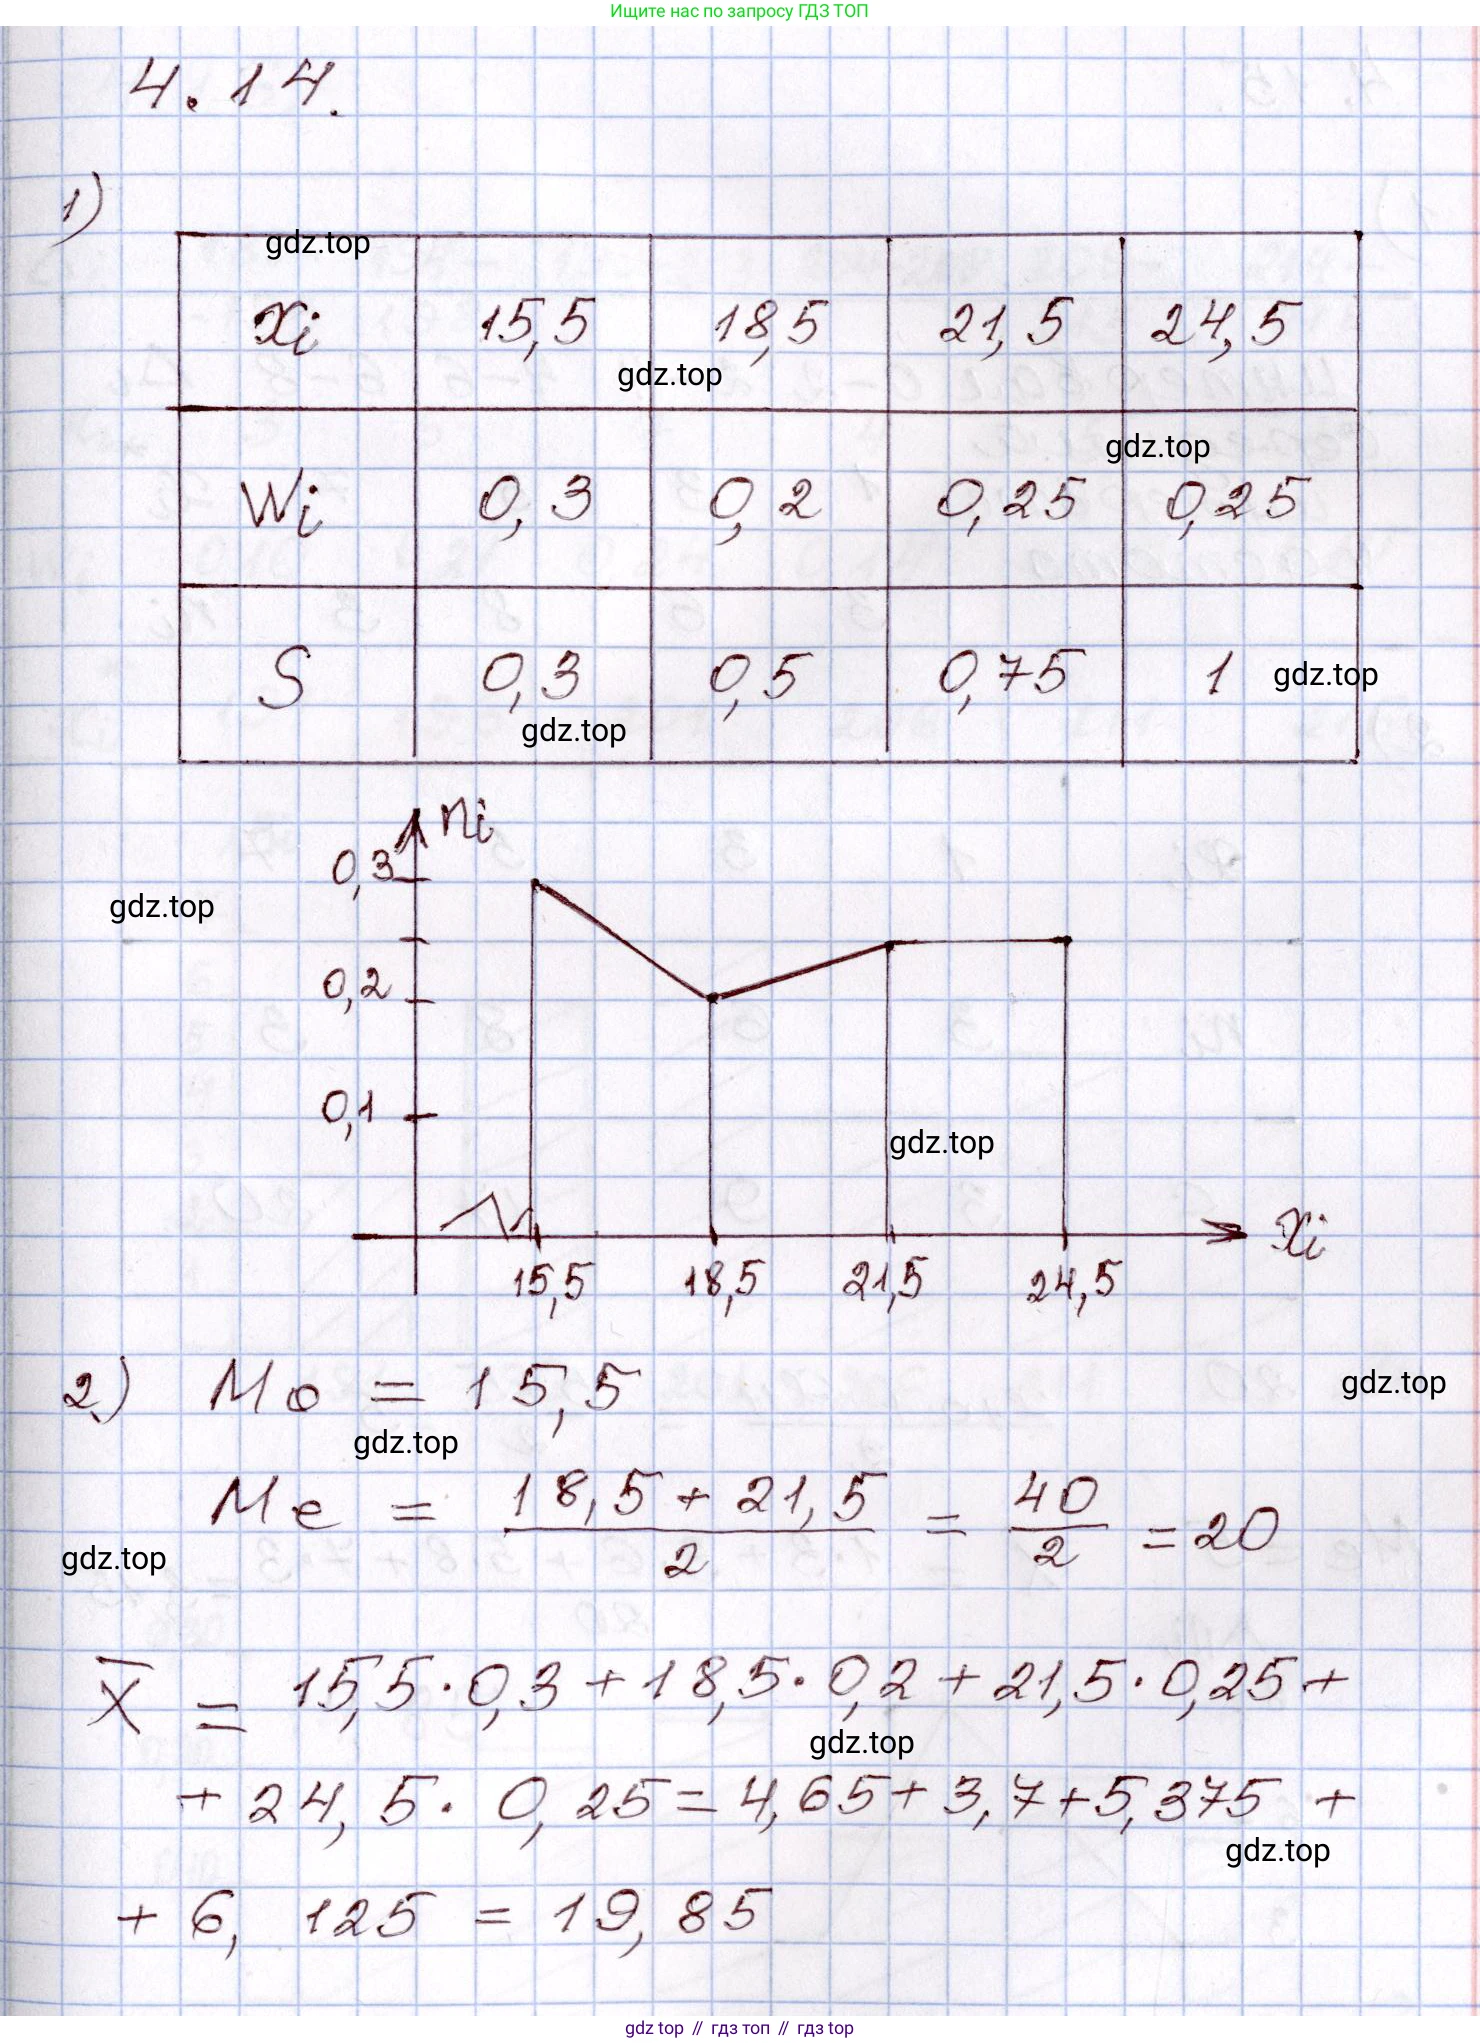 Ищите нас по запросу ГДЗ ТОП
4.14.
1)
gdz.top
xi 15,5 18,5 21,5 24,5
gdz.top
gdz.top
Wi 0,3 0,2 0,25 0,25
S 0,3 0,5 0,75 1 gdz.top
gdz.top
ni
0,3
gdz.top
0,2
0,1
gdz.top
xi
15,5 18,5 21,5 24,5
2) Mo = 15,5
gdz.top
gdz.top
Me = \frac{18,5 + 21,5}{2} = \frac{40}{2} = 20
gdz.top
X̅ = 15,5 · 0,3 + 18,5 · 0,2 + 21,5 · 0,25 +
gdz.top
+ 24,5 · 0,25 = 4,65 + 3,7 + 5,375 +
gdz.top
+ 6,125 = 19,85
gdz top // гдз топ // гдз top